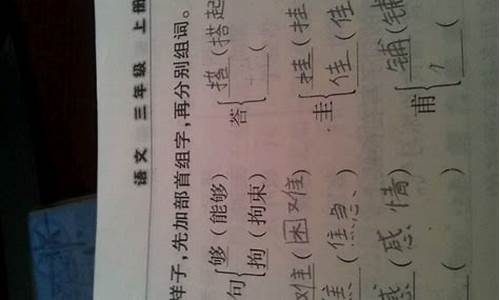 语文 三年级 上册
样子,先加部首组字,再分别组词。
够(能够) 搭(搭起
句 荅
拘(拘束) (
难(困难) 挂(挂
圭
焦(焦急、) 佳(佳
感(感情) 铺(铺
甫
( ) (